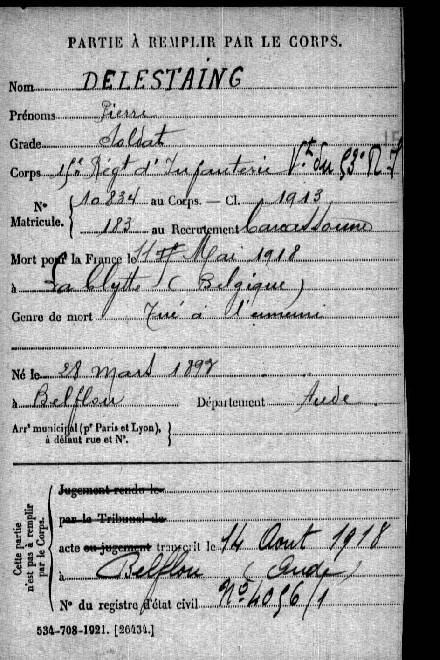 PARTIE À REMPLIR PAR LE CORPS.
Nom DELESTAING
Prénoms Pierre
Grade Soldat
Corps 15e Régt d'Infanterie Vt du 53e R.I
N° Matricule. { 10834 au Corps. — Cl. 1913
183 au Recrutement Carcassonne
Mort pour la France le 11 Mai 1918
à La Clytte (Belgique)
Genre de mort Tué à l'ennemi
Né le 28 mars 1897
à Belflou Département Aude
Arrt municipal (pr Paris et Lyon), à défaut rue et N°. }
Cette partie n'est pas à remplir par le Corps.
Jugement rendu le
par le Tribunal de
acte ou jugement transcrit le 14 Aout 1918
à Belflou (Aude)
N° du registre d'état civil N° 4096/1
534-708-1921. [26434.]